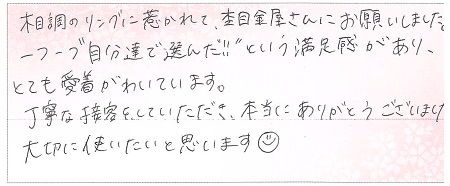 木目調のリングに惹かれて、杢目金屋さんにお願いしました
一つ一つ"自分達で選んだ!!"という満足感があり、
とても愛着がわいています。
丁寧な接客をしていただき、本当にありがとうございまし
大切に使いたいと思います☺